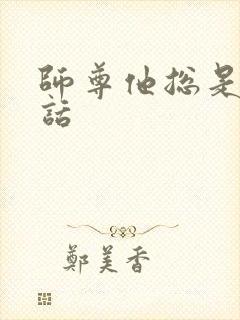 師尊他總是
話
鄭美香